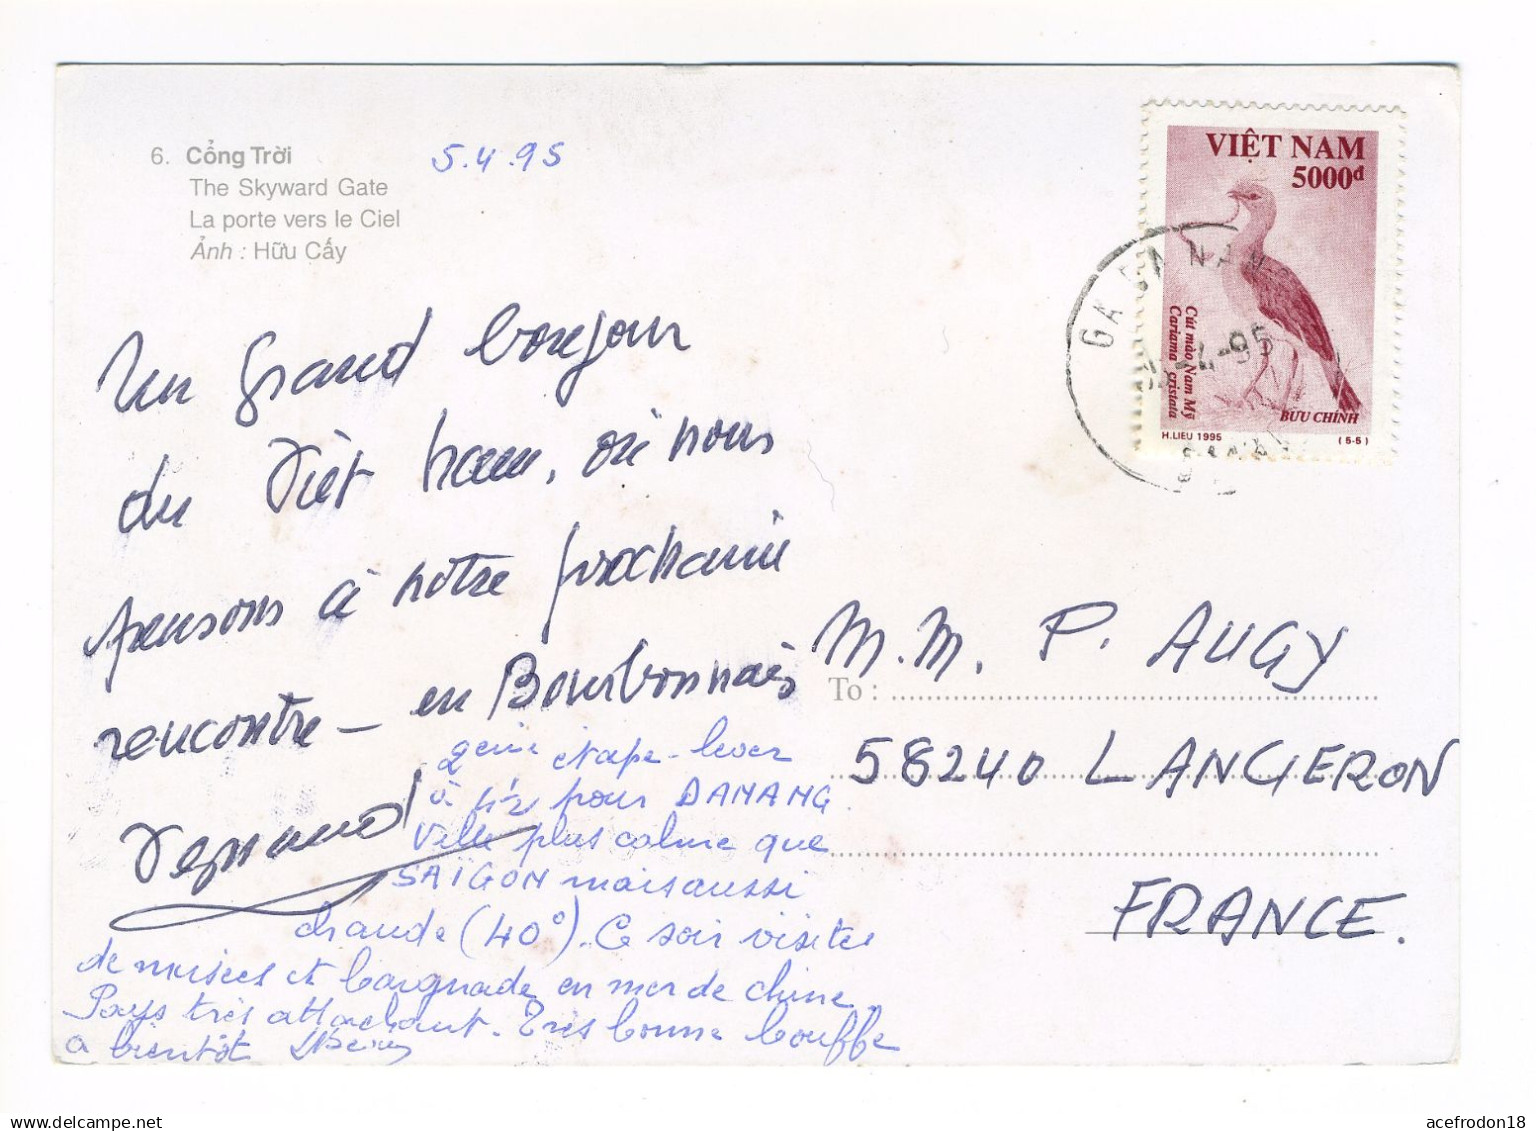 6. Cổng Trời
The Skyward Gate
La porte vers le Ciel
Ảnh : Hữu Cấy
5.4.95
VIỆT NAM
5000đ
Cút mào Nam Mỹ
Cariama cristata
BƯU CHÍNH
H.LIEU 1995
(5-5)
GA DANAN
-4-95
Un grand bonjour
du Viêt Nam, où nous
pensons à notre prochaine
rencontre - en Bourbonnais
2ème étape - lever
à 4h½ pour DANANG.
Ville plus calme que
SAÏGON mais aussi
chaude (40°). Ce soir visite
de musées et baignade en mer de chine.
Pays très attachant. Très bonne bouffe
a bientôt
M.M. P. AUGY
To :
58240 LANGERON
FRANCE.
acefrodon18